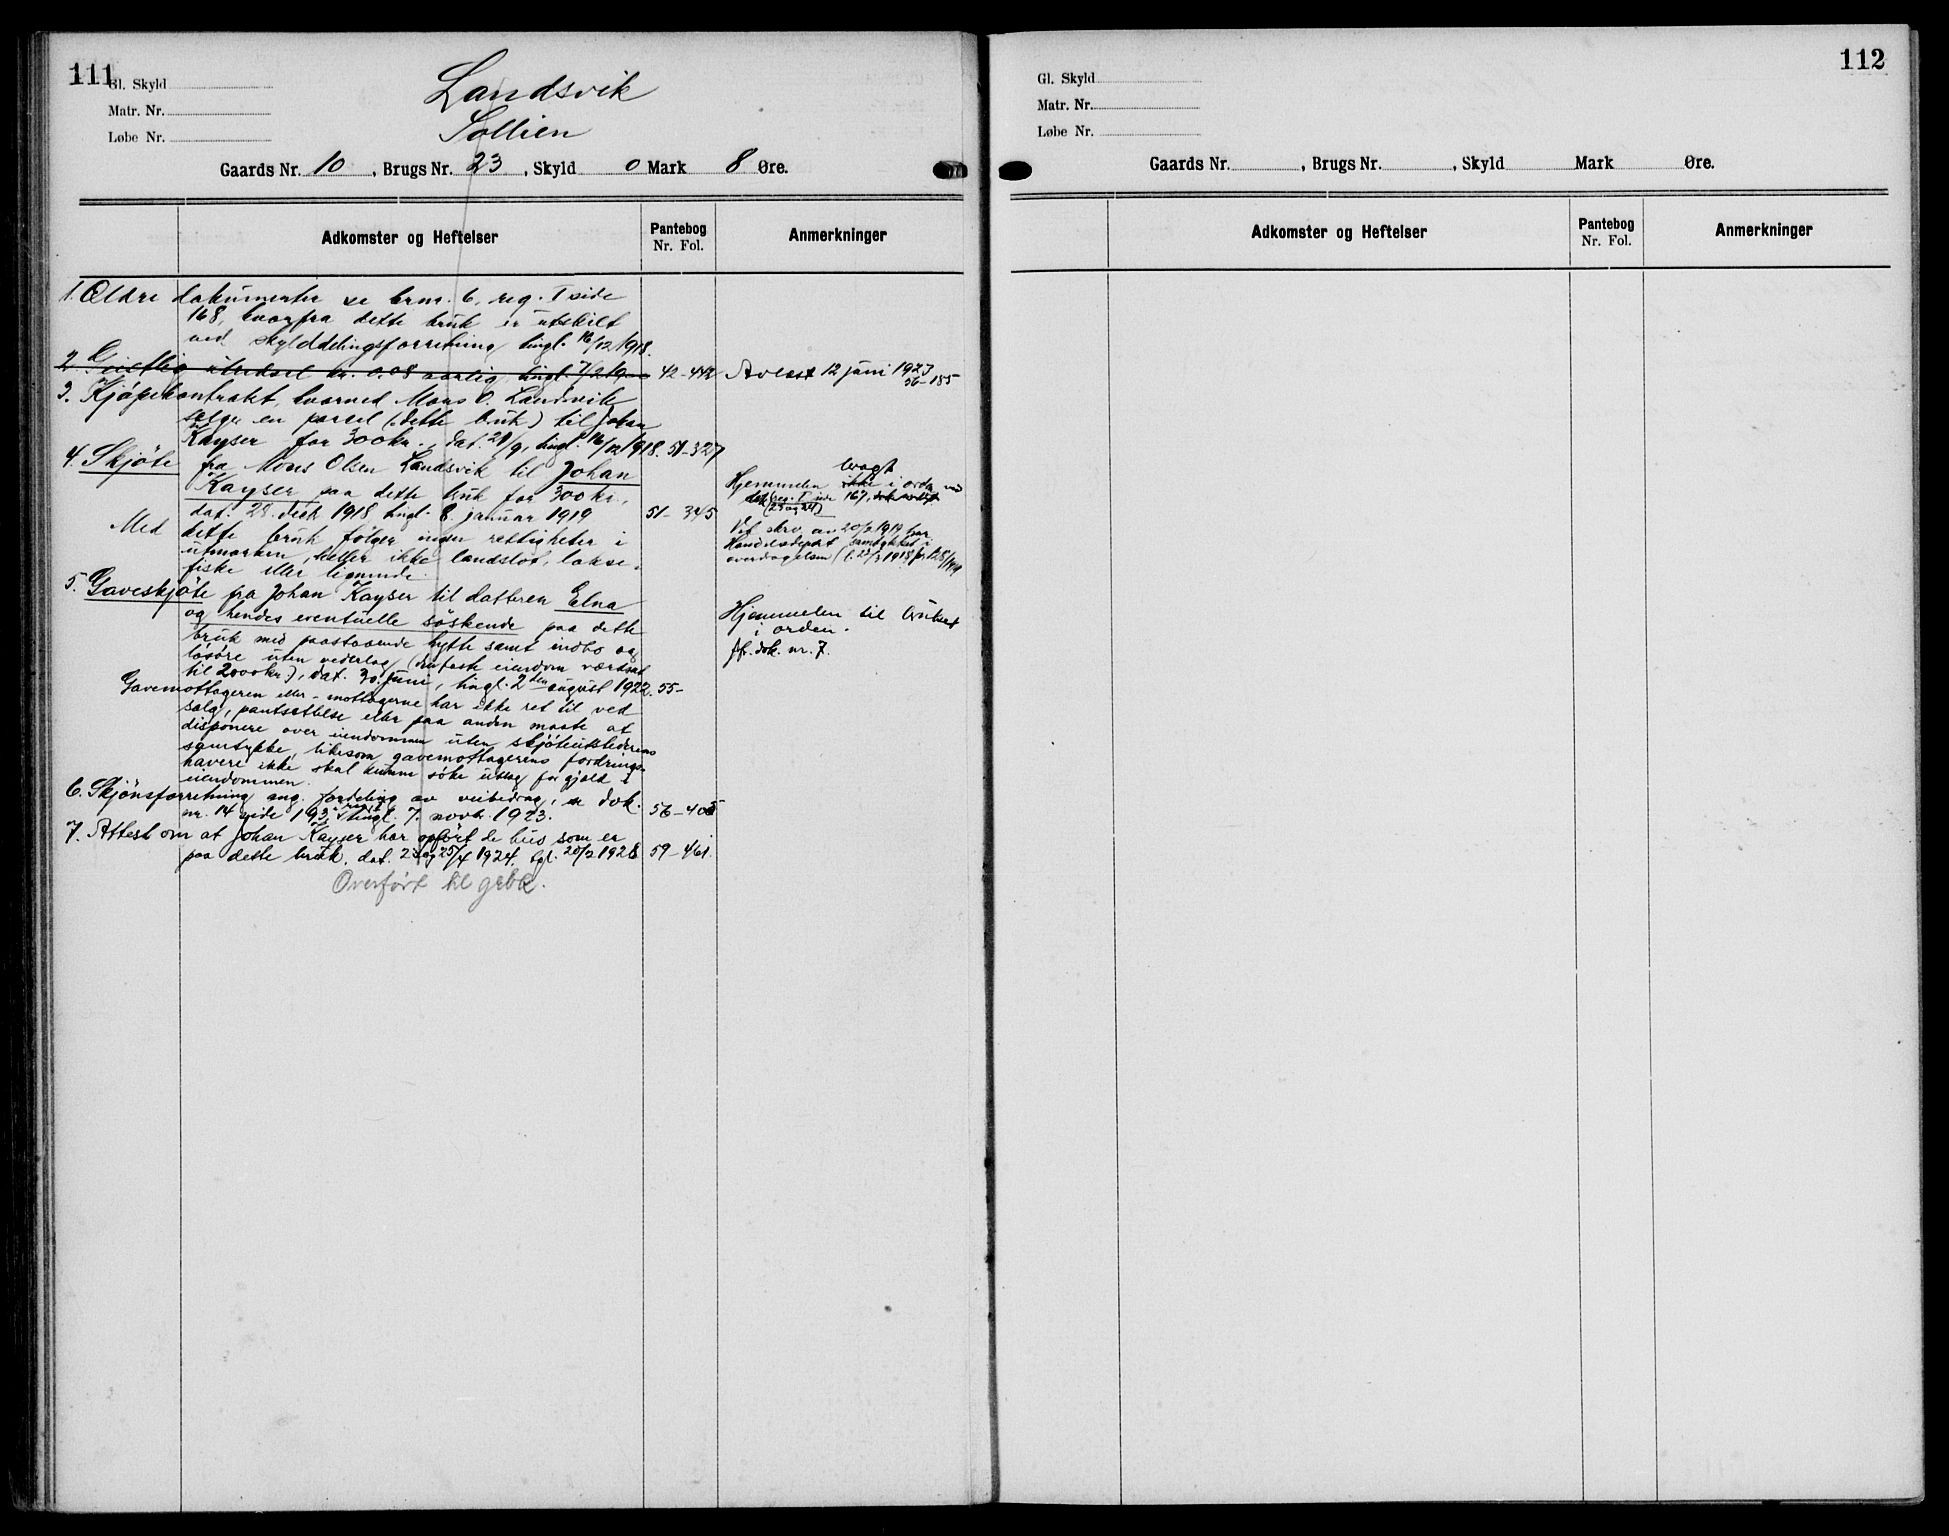 111
Gl. Skyld
Matr. Nr.
Løbe Nr.
Landsvik
Sollien
Gaards Nr. 10, Brugs Nr. 23, Skyld 0 Mark 8 Øre.
Adkomster og Heftelser
Pantebog
Nr. Fol.
Anmerkninger
1. Ældre dokumenter se brnr. 6, reg. I side
168, hvorfra dette bruk er utskilt
ved skylddelingsforretning tingl. 16/12 1918.
2. Geistlig utredsel kr. 0.08 aarlig, tingl. 7/2 19 42-442 Avløst 12 juni 1923
56-185
3. Kjøpekontrakt, hvorved Mons O. Landsvik
sælger en parsel (dette bruk) til Johan
Kayser for 300 kr., dat. 29/9, tingl. 16/12 1918. 51-327
4. Skjøte fra Mons Olsen Landsvik til Johan
Kayser paa dette bruk for 300 kr.,
dat. 28. desb 1918 tingl. 8. januar 1919 51-345
Med dette bruk følger ingen rettigheter i
utmarken, heller ikke landslot, lakse-
fiske eller lignende.
Hjemmelen ikke bragt i orden ved
dok. reg. I side 167,
(23 og 24)
Ved skrv. av 20/2 1919 har
Handelsdepart samtykket i
overdragelsen
5. Gaveskjøte fra Johan Kayser til datteren Elna
og hendes eventuelle søskende paa dette
bruk med paastaaende hytte samt indbo og
løsøre uten vederlag (den faste eiendom værdsat
til 2000 kr.), dat. 30. juni, tingl. 2den august 1922. 55-
Hjemmelen til bruket
i orden.
Jfr. dok. nr. 7.
Gavemottageren eller -mottagerne har ikke ret til ved
salg, pantsættelse eller paa anden maate at
disponere over eiendommen uten skjøteutstederens
samtykke, likesom gavemottagerens fordrings-
havere ikke skal kunne søke utlæg for gjæld i
eiendommen.
6. Skjønsforretning ang. fordeling av veibidrag, se dok.
nr. 14 side 193, tingl. 7. novbr. 1923. 56-405
7. Attest om at Johan Kayser har opført de hus som er
paa dette bruk, dat. 2 og 25/4 1924, tgl. 20/2 1928 59-461.
Overført til grbk.
112
Gl. Skyld
Matr. Nr.
Løbe Nr.
Gaards Nr. , Brugs Nr. , Skyld Mark Øre.
Adkomster og Heftelser
Pantebog
Nr. Fol.
Anmerkninger